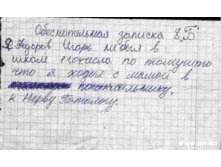 Обеснительная записка 8„Б"
Я Федоров Игорь не был в
школе 110 числа по томушто
что я ходел с мамой в
поликлинику,
к Нерву Патологу.